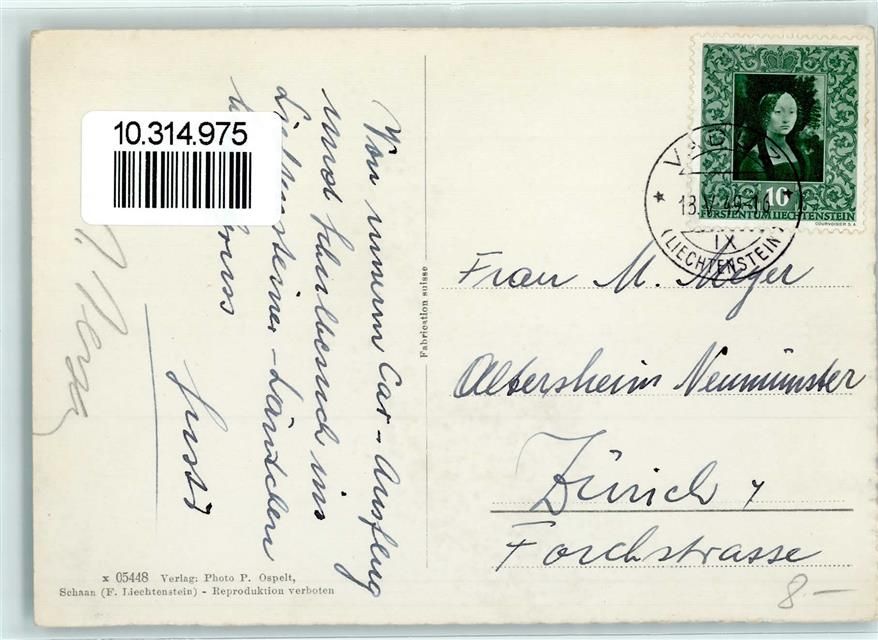 10.314.975
Von unserm Car-Ausflug
und
ins
Liechtensteiner-Ländchen
Gruss
Fabrication suisse
x 05448 Verlag: Photo P. Ospelt,
Schaan (F. Liechtenstein) - Reproduktion verboten
10
FÜRSTENTUM LIECHTENSTEIN
COURVOISIER S.A.
VADUZ
18.V.49-10
IX
(LIECHTENSTEIN)
Frau M. Meyer
Altersheim Neumünster
Zürich 7
Forchstrasse
8.-